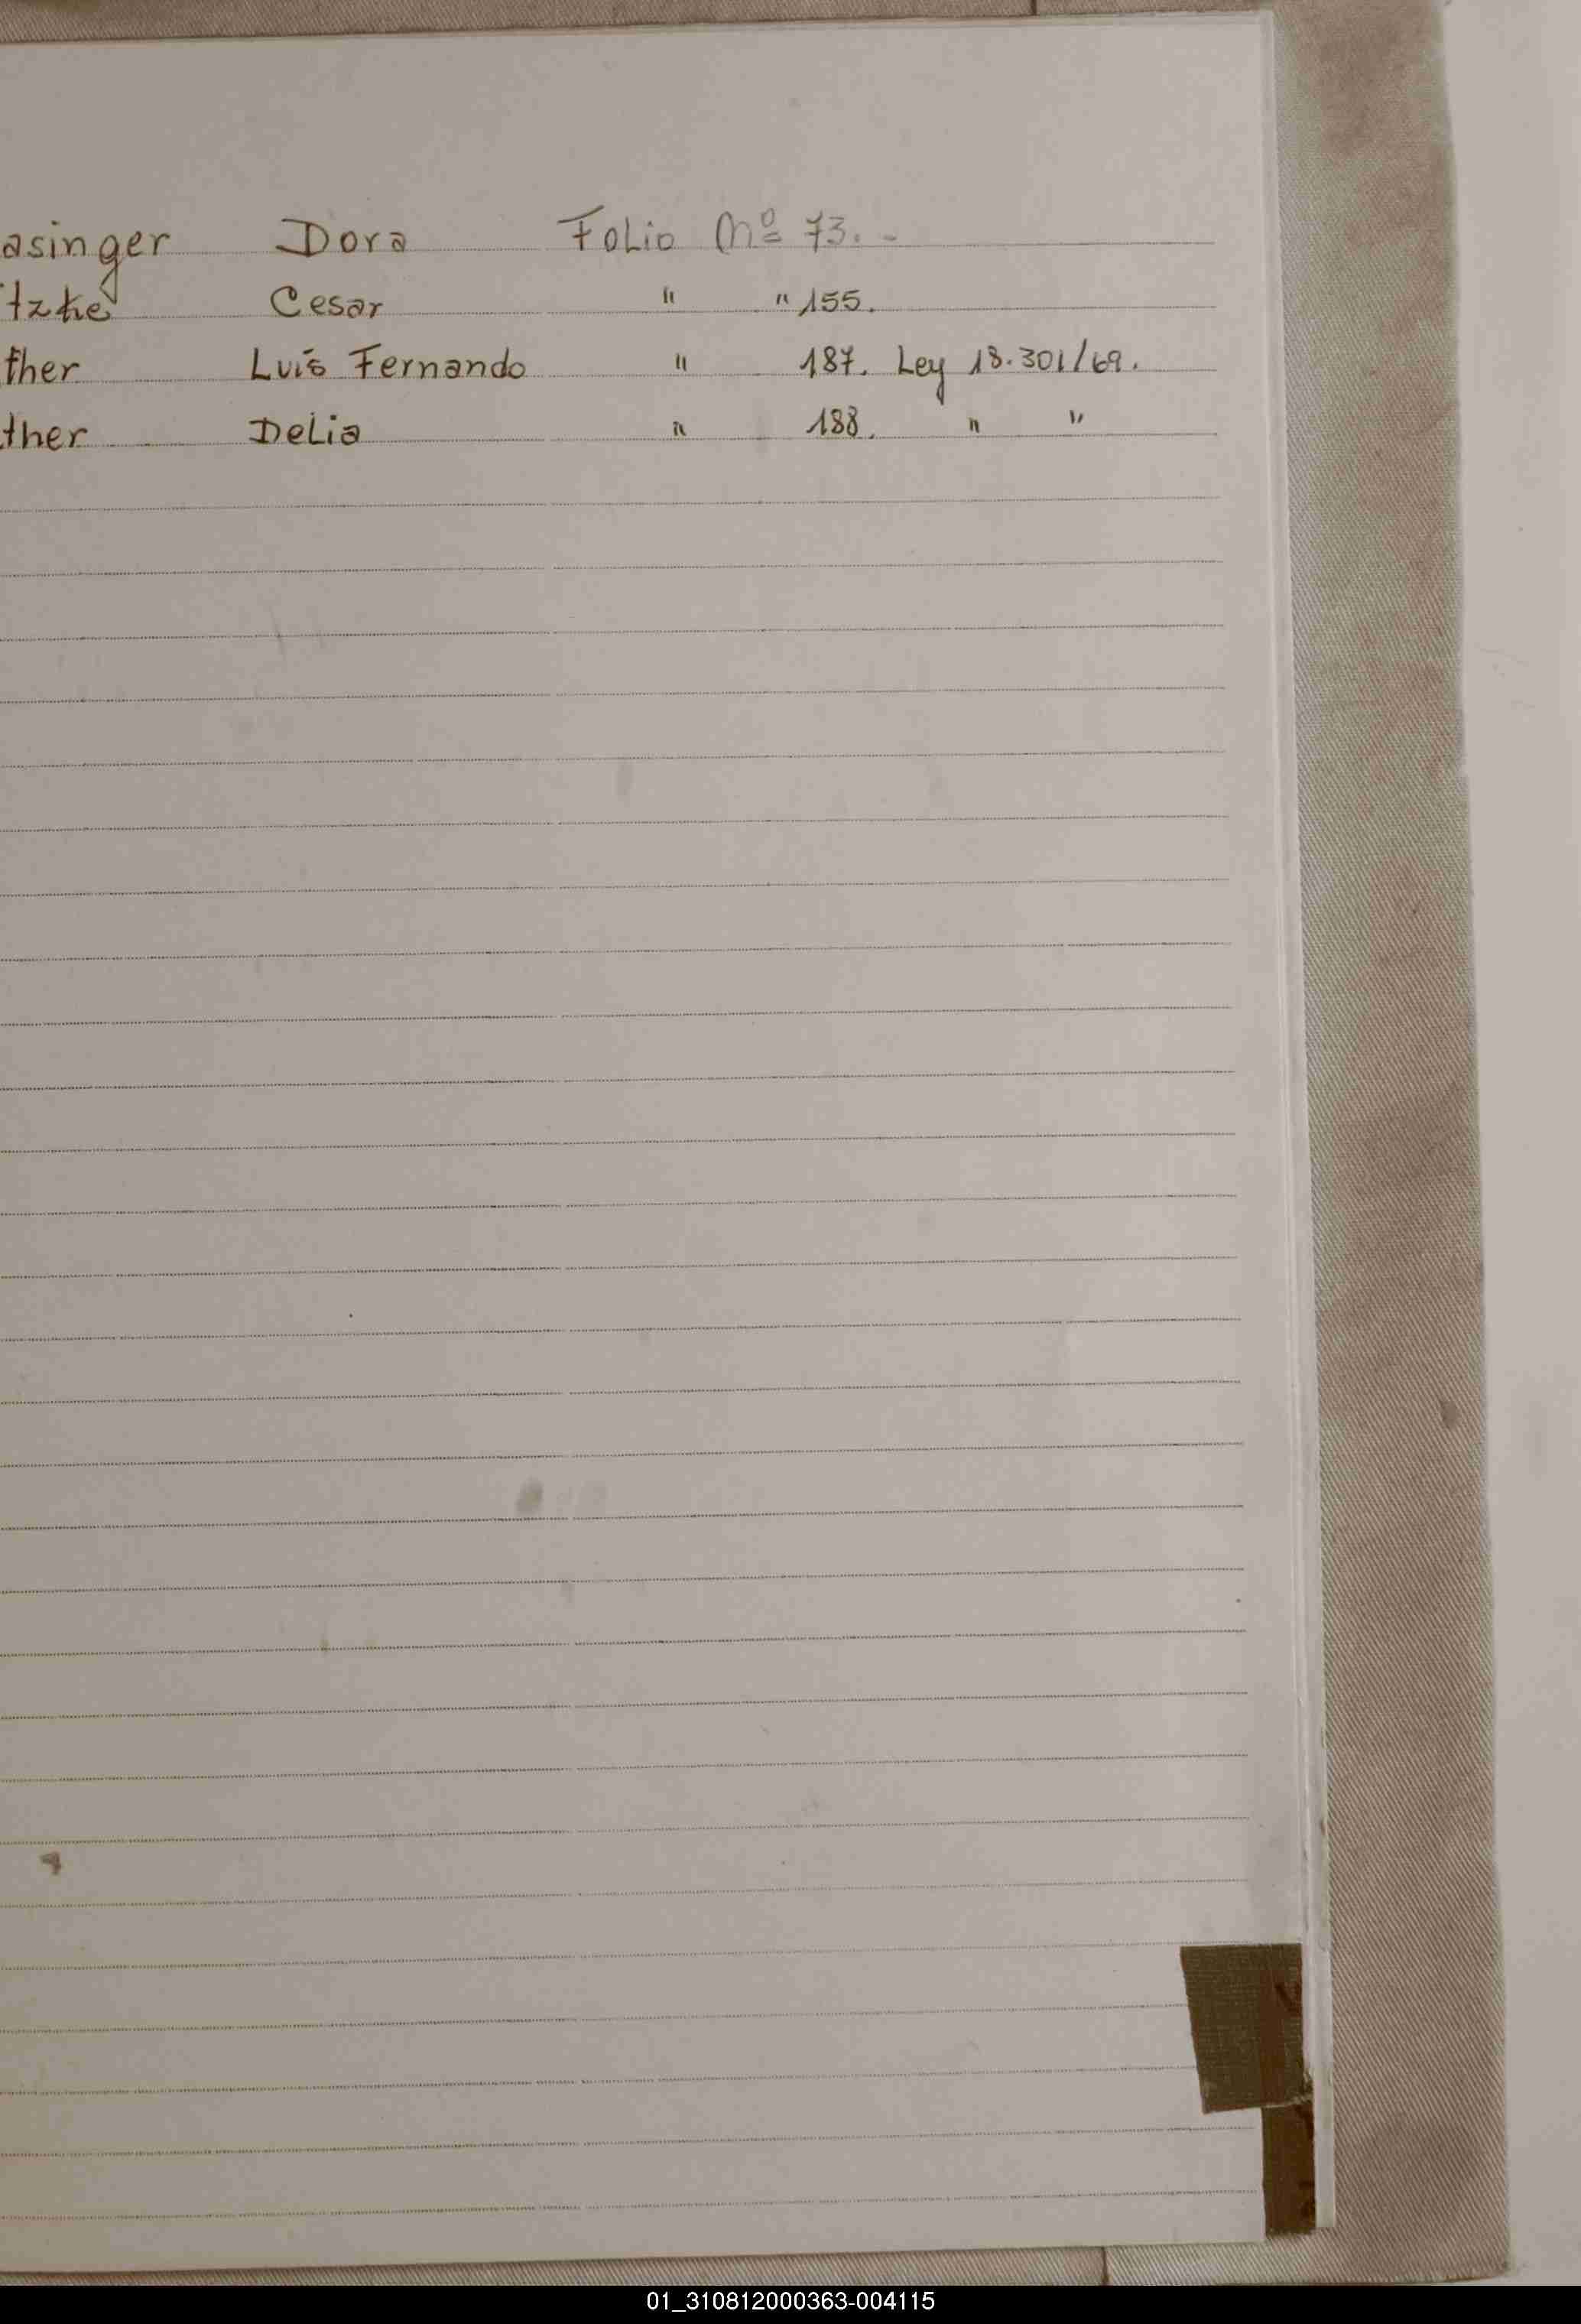 asinger Dora Folio Nº 73.-
itzke Cesar " " 155.
ther Luis Fernando " 187. Ley 18.301/69.
ther Delia " 188. " "
01_310812000363-004115